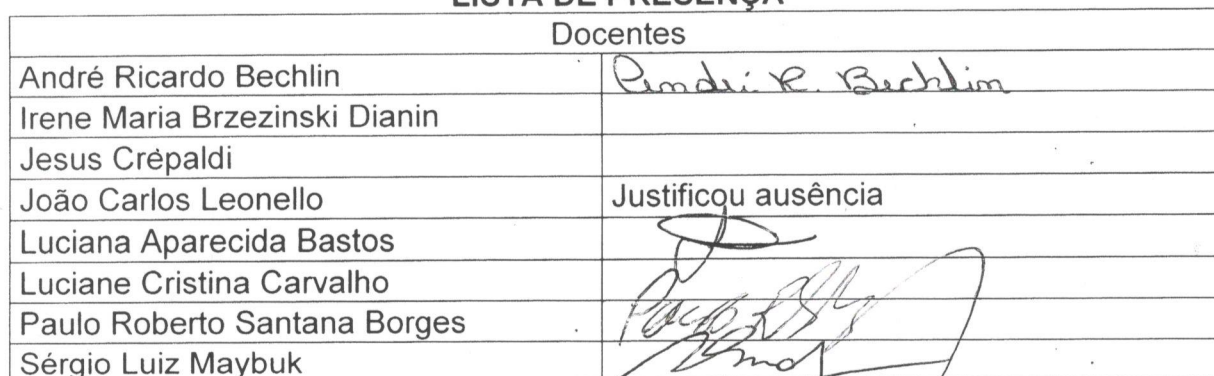 LISTA DE PRESENÇA
Docentes
André Ricardo Bechlin André R. Bechlin
Irene Maria Brzezinski Dianin
Jesus Crépaldi
João Carlos Leonello Justificou ausência
Luciana Aparecida Bastos
Luciane Cristina Carvalho
Paulo Roberto Santana Borges Paulo
Sérgio Luiz Maybuk